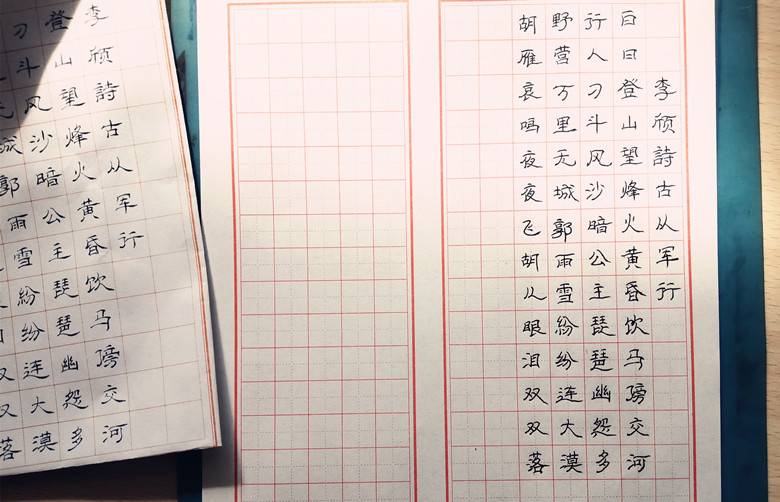 李颀詩古从军行
白日登山望烽火黄昏饮马傍交河
行人刁斗风沙暗公主琵琶幽怨多
野营万里无城郭雨雪紛紛连大漠
胡雁哀鸣夜夜飞胡儿眼泪双双落
李颀詩古从军行
登山望烽火黄昏饮马傍交河
刁斗风沙暗公主琵琶幽怨多
无城郭雨雪紛紛连大漠
双双落